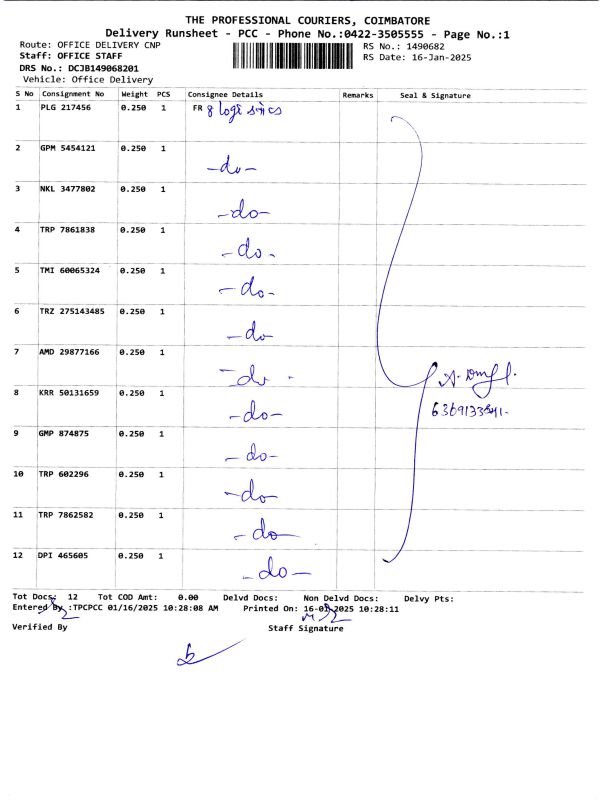 THE PROFESSIONAL COURIERS, COIMBATORE
Delivery Runsheet - PCC - Phone No.:0422-3505555 - Page No.:1
Route: OFFICE DELIVERY CNP RS No.: 1490682
Staff: OFFICE STAFF RS Date: 16-Jan-2025
DRS No.: DCJB149068201
Vehicle: Office Delivery
S No Consignment No Weight PCS Consignee Details Remarks Seal & Signature
1 PLG 217456 0.250 1 FR 8 logi
2 GPM 5454121 0.250 1 -do-
3 NKL 3477802 0.250 1 -do-
4 TRP 7861838 0.250 1 -do-
5 TMI 60065324 0.250 1 -do-
6 TRZ 275143485 0.250 1 -do-
7 AMD 29877166 0.250 1 -do-
8 KRR 50131659 0.250 1 -do-
9 GMP 874875 0.250 1 -do-
10 TRP 602296 0.250 1 -do-
11 TRP 7862582 0.250 1 -do-
12 DPI 465605 0.250 1 -do-
Tot Docs: 12 Tot COD Amt: 0.00 Delvd Docs: Non Delvd Docs: Delvy Pts:
Entered By :TPCPCC 01/16/2025 10:28:08 AM Printed On: 16-01-2025 10:28:11
Verified By Staff Signature